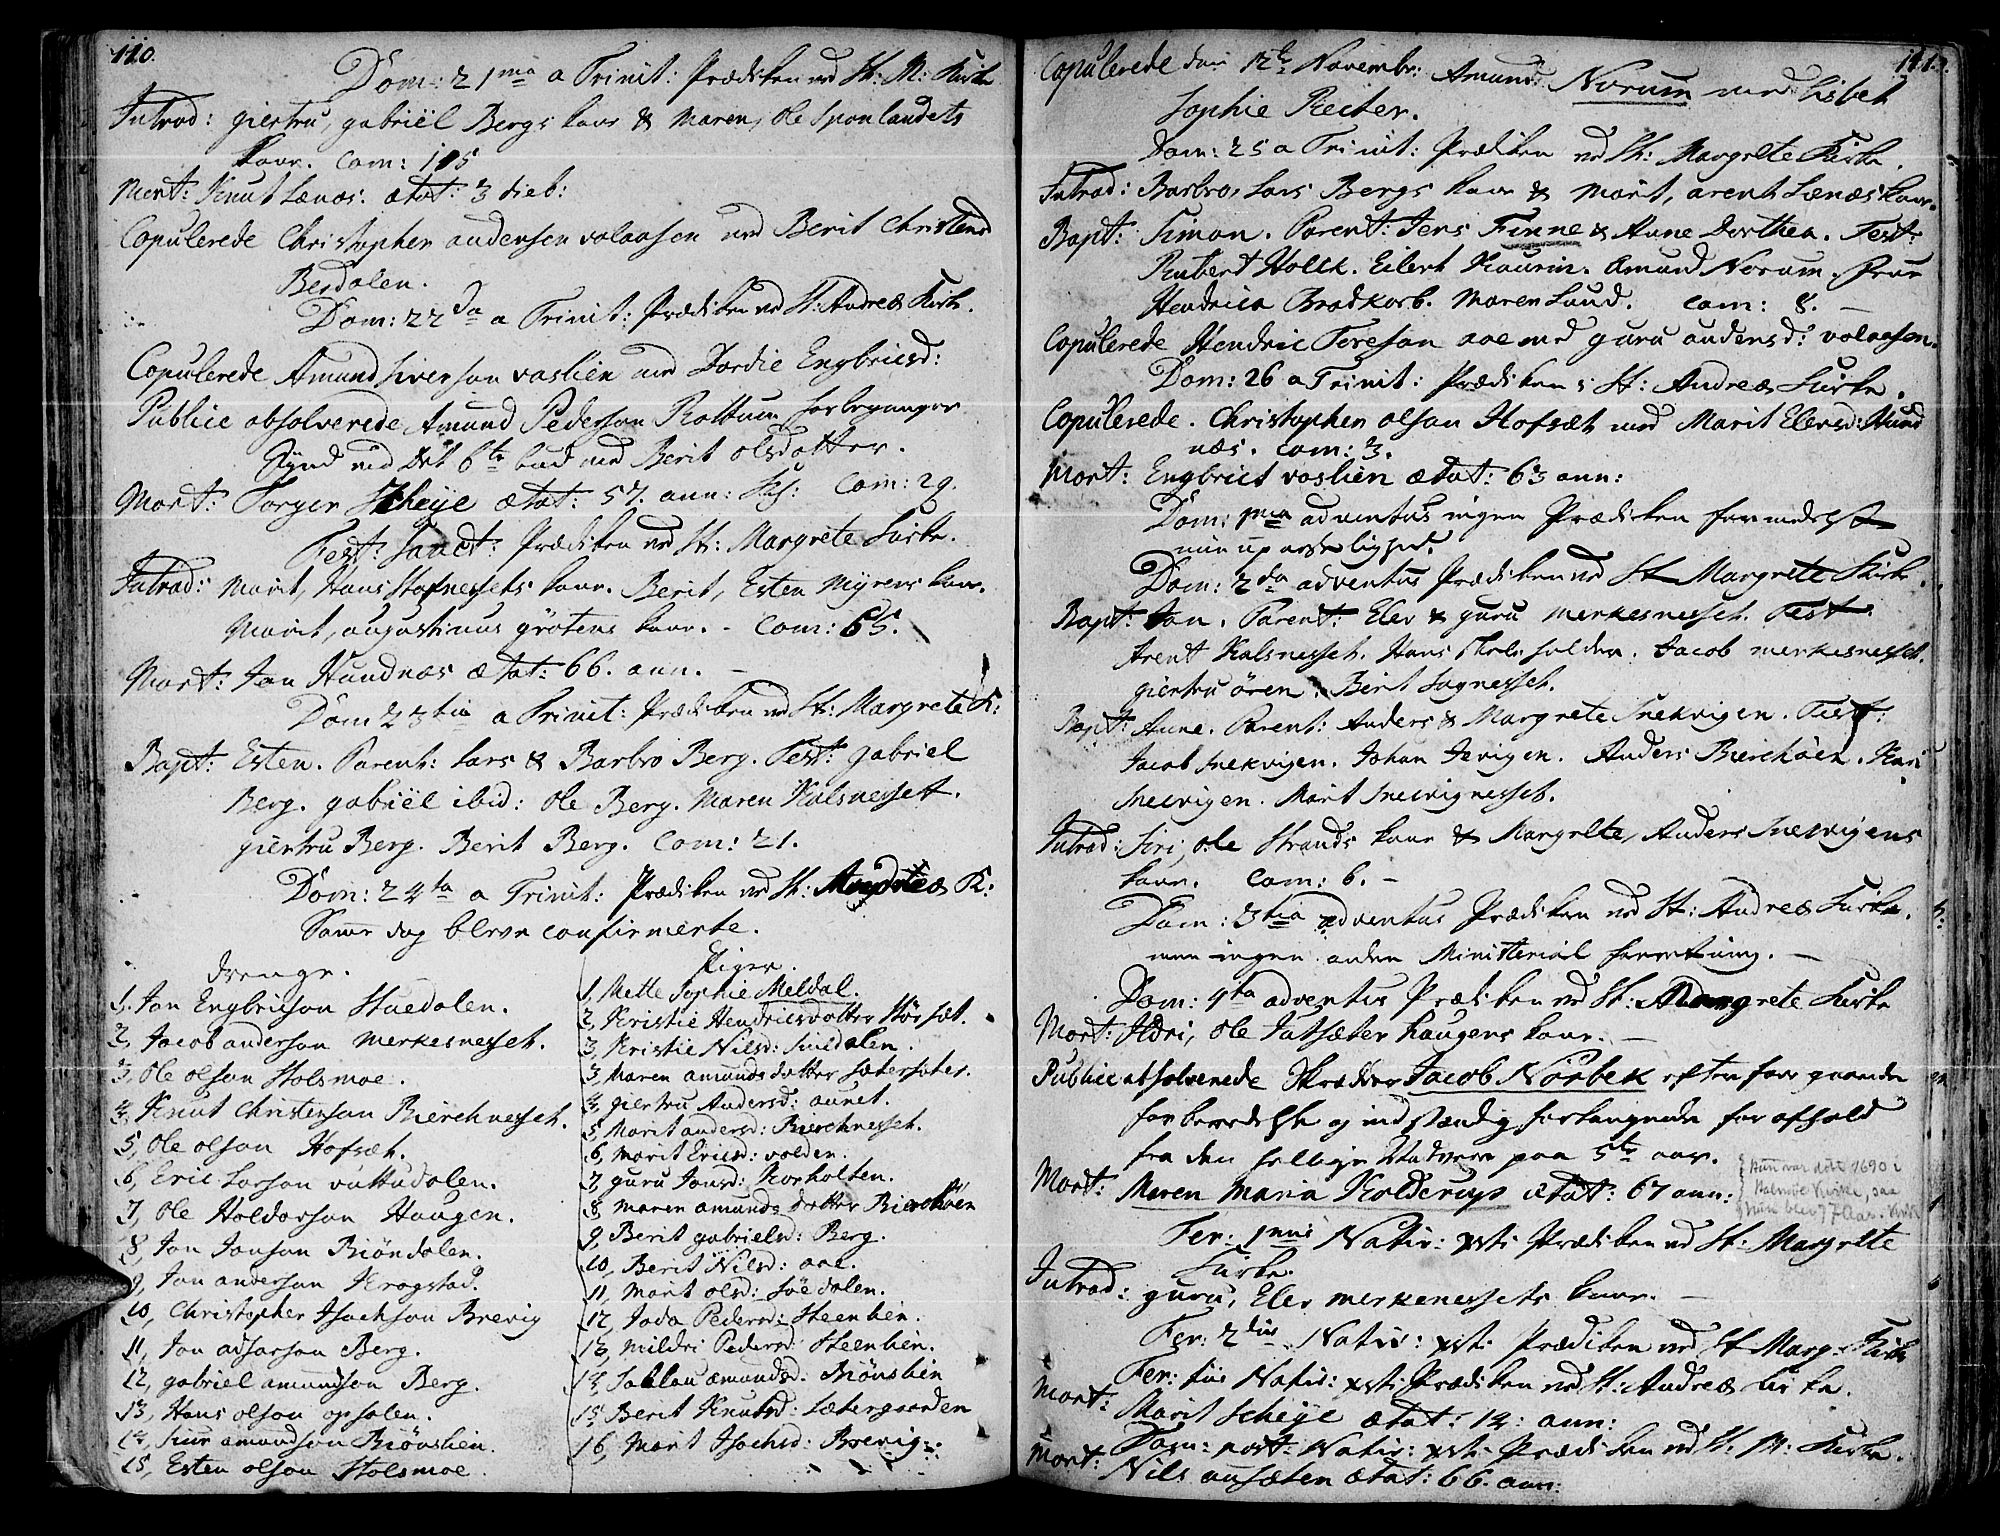 110.
Dom: 21ma a Trinit: Prædiken ved St: M: Kirke
Introd: giertru, gabriel Bergs kone & Maren, Ole Sponlandets
kone. Com: 105
Mort: Knut Lenæs. ætat: 3 dieb:
Copulerede Christopher andersen volaasen med Berit Christensd
Berdalen.
Dom: 22da a Trinit: Prædiken ved St: Andreæ Kirke.
Copulerede Amund siverson vaslien med Dordie Engbricsd:
Publice absolverede Amund Pederson Rottum forbegangen
Synd mod det 6te bud med Berit olsdatter.
Mort: Torger Scheye ætat: 57. ann: Com: 29.
Fest: Sanct: Prædiken ved St: Margrete Kirke.
Introd: Marit, Hans Hofnessets kone. Berit, Esten Myrens kone.
Marit, augustinus grötens kone. - Com: 65.
Mort: Jon Hundnæs ætat: 66. ann. -
Dom 23tia a Trinit: Prædiken ved St: Margrete K:
Bapt: Esten. Parent: Lars & Barbro Berg. Test: gabriel
Berg. gabriel ibid: Ole Berg. Maren Kalsnesset.
giertru Berg. Berit Berg. Com: 21.
Dom: 24ta a Trinit: Prædiken ved St: Andreæ K:
Samme dag bleve confirmerte.
drenge.
1, Jon Engbricson Stuedalen.
2, Jacob anderson Merkesnesset.
3, Ole olson Holsmoe.
4, Knut Christenson Bierchnesset.
5, Ole olson Hofsæt.
6, Eric Larson vuttudalen.
7, Ole Haldorson Haugen.
8, Jon Jonson Biöndalen.
9, Jon anderson Krogstad.
10, Christopher Isachson Brevig
11, Jon adsarson Berg.
12, gabriel amundson Berg.
13, Hans olson opsalen.
14, siur amundson Biönslien.
15, Esten olson Holsmoe.
Piger.
1, Mette Sophie Meldal.
2, Kristie Hendricsdotter Hörsæt.
3, Kristie Nilsd: Smedalen.
3, Maren amunds dotter sætersæter.
4, giertru Andersd: aunet.
5, Marit andersd: Bierchnesset.
6, Marit Ericsd: volden.
7, guru Jonsd: Korholten.
8, Maren amunds dotter Bierchöen
9, Berit gabrielsd: Berg.
10, Berit Nilsd: aae.
11, Marit olsd: Söedalen.
12, Joda Pedersd: Steenbien.
13, Mildri Pedersd: Steenbien.
14, Sallau amundsd: Biönslien
15, Berit Knutsd: Sætergaarden
16, Marit Isachsd: Brevig.
111.
Copulerede den 12te Novembr: Amund Norum med Lisbet
Sophie Reiter.
Dom: 25 a Trinit: Prædiken ved St: Margrete Kirke.
Introd: Barbro, Lars Bergs kone & Marit, arent Lenæs kone.
Bapt: Simon. Parent: Jens Finne & Anne Dorthea. Test:
Rubert Holck. Eilert Kaurin. Amund Norum.
Hendrica Brodkorb. Maren Lund. Com: 8. -
Copulerede Hendric Toreson aae med guru andersd: volaasen.
Dom: 26 a Trinit: Prædiken i St: Andreæ Kirke.
Copulerede. Christopher olson Hofsæt med Marit Elersd: Hund
næs. Com: 3.
Mort: Engbrict vaslien ætat: 63 ann:
Dom: 1ma adventus ingen Prædiken formedelst
min upasselighed.
Dom: 2da adventus Prædiken ved St Margrete Kirke.
Bapt: Jon. Parent: Eler & guru Merkesnesset. Test:
Arent Kalsnesset. Hans Jacob Merkesnesset.
giertru ören. Berit Sognesset.
Bapt: Anne. Parent: Anders & Margrete Snekvigen. Test:
Jacob Snekvigen. Johan Jevigen. Anders Bierchöen. Kari
Snekvigen. Marit Snekvignesset.
Introd: Siri, Ole Strands kone & Margrete, Anders Snekvigens
kone. Com: 6. -
Dom: 3tia adventus Prædiken ved St: Andreæ Kirke.
men ingen anden Ministerial forretning. -
Dom: 4ta adventus Prædiken ved St: Margrete Kirke
Mort: Ildri, Ole Jutsæter haugens kone. -
Publice absolverede Skrædder Jacob Norbek efter foregaaende
forberedelse og indstændig forlangende for afhold
fra den hellige Nadvere paa 5te aar.
Mort: Maren Maria Kolderup ætat: 67 ann:
Hun var død 1690 i
Halsnæs Kirke, saa
hun blev 77 Aar.
Fer: 1mus Nativ: xsti Prædiken ved St: Margrete
Kirke.
Introd: guru, Eler Merkenessets kone. -
Fer: 2dus Nativ: xsti Prædiken ved St Marg: Kirke
Fer: 3tius Nativ: xsti Prædiken ved St: Andreæ Kirke.
Mort: Marit Scheye ætat: 14: ann:
Dom: post Nativ: xsti Prædiken ved St: M: Kirke.
Mort: Nils aussæten ætat: 66. ann: